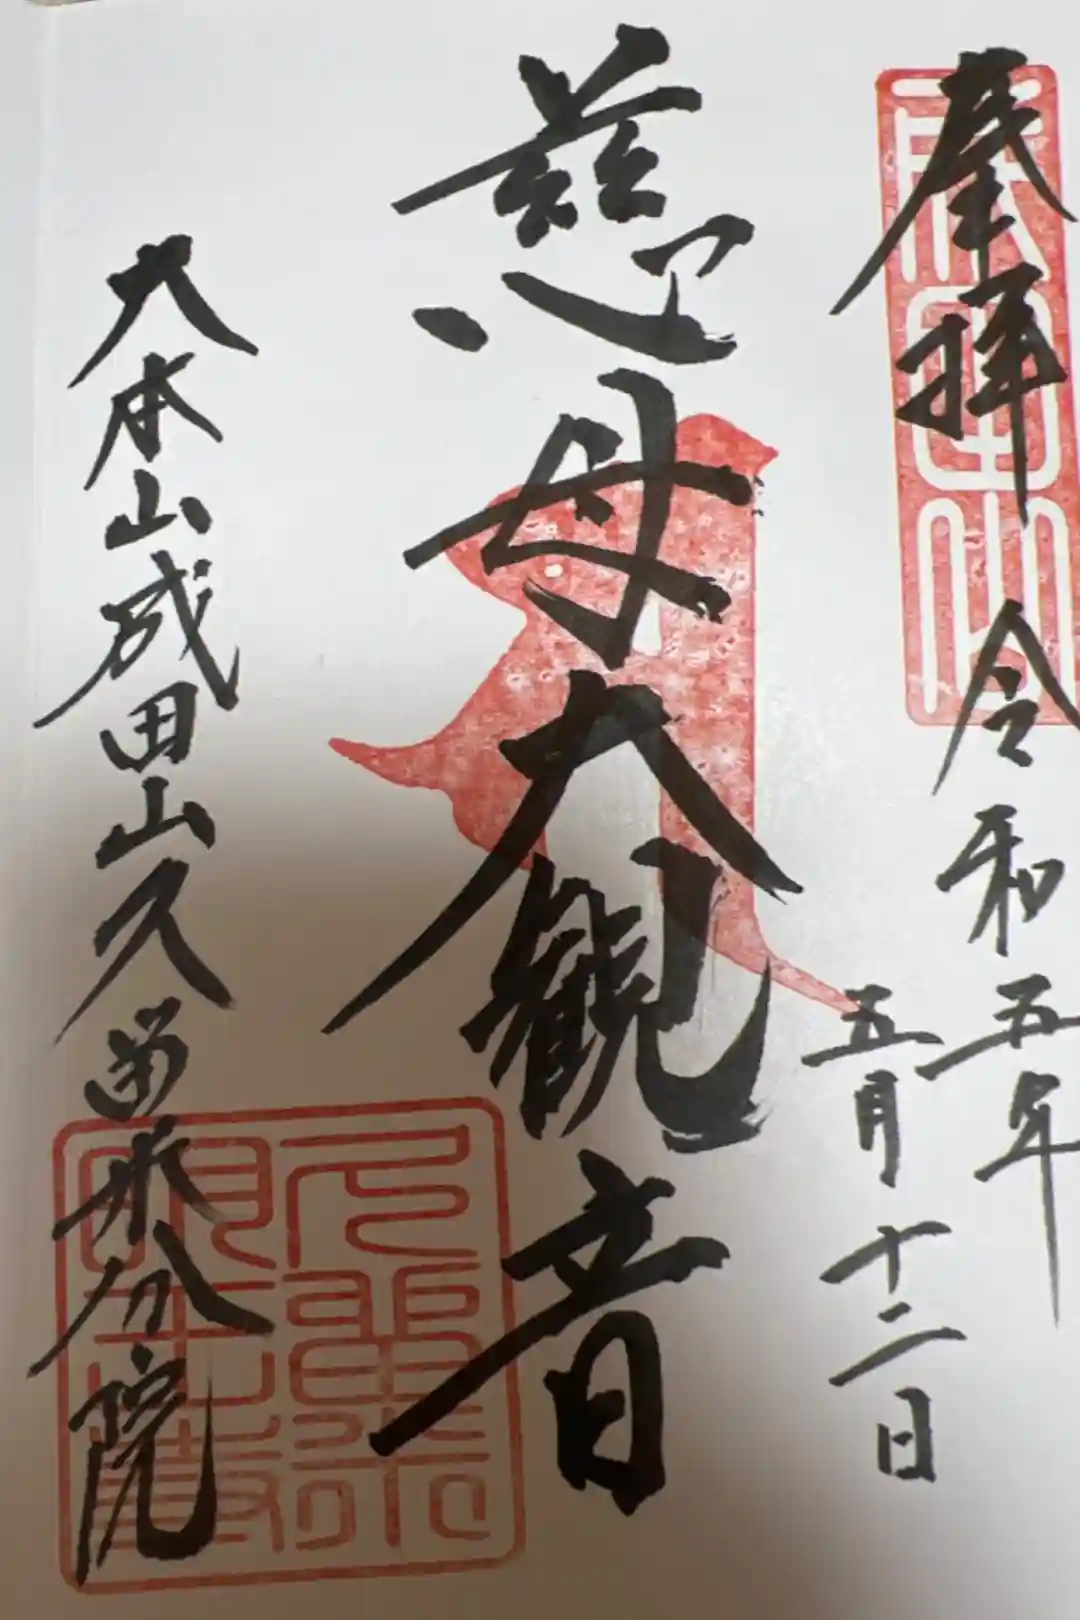 奉拝 令和五年
五月十二日
慈母大観音
大本山成田山久留米分院
成田山